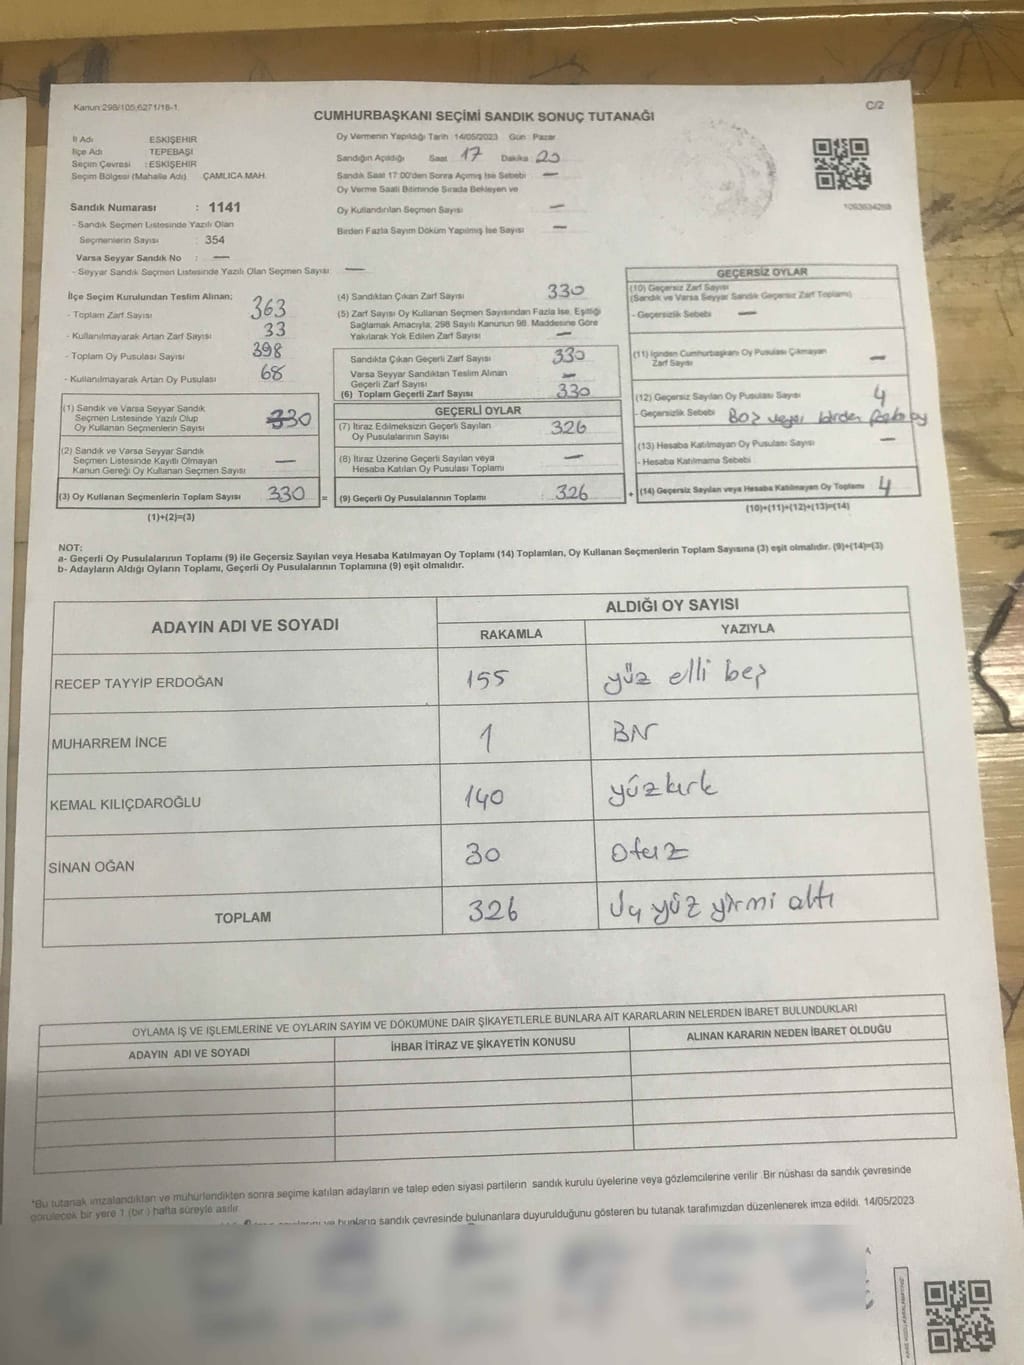 Kanun:298/105,6271/18-1
C/2
CUMHURBAŞKANI SEÇİMİ SANDIK SONUÇ TUTANAĞI
İl Adı ESKİŞEHİR
İlçe Adı TEPEBAŞI
Seçim Çevresi : ESKİŞEHİR
Seçim Bölgesi (Mahalle Adı) ÇAMLICA MAH.
Sandık Numarası : 1141
- Sandık Seçmen Listesinde Yazılı Olan
Seçmenlerin Sayısı : 354
Varsa Seyyar Sandık No : —
- Seyyar Sandık Seçmen Listesinde Yazılı Olan Seçmen Sayısı —
Oy Vermenin Yapıldığı Tarih :14/05/2023 Gün : Pazar
Sandığın Açıldığı Saat 17 Dakika 20
Sandık Saat 17:00'den Sonra Açılmış İse Sebebi —
Oy Verme Saati Bitiminde Sırada Bekleyen ve
Oy Kullandırılan Seçmen Sayısı —
Birden Fazla Sayım Döküm Yapılmış İse Sayısı —
İlçe Seçim Kurulundan Teslim Alınan;
- Toplam Zarf Sayısı 363
- Kullanılmayarak Artan Zarf Sayısı 33
- Toplam Oy Pusulası Sayısı 398
- Kullanılmayarak Artan Oy Pusulası 68
(1) Sandık ve Varsa Seyyar Sandık
Seçmen Listesinde Yazılı Olup
Oy Kullanan Seçmenlerin Sayısı 330
(2) Sandık ve Varsa Seyyar Sandık
Seçmen Listesinde Kayıtlı Olmayan
Kanun Gereği Oy Kullanan Seçmen Sayısı —
(3) Oy Kullanan Seçmenlerin Toplam Sayısı 330 =
(1)+(2)=(3)
(4) Sandıktan Çıkan Zarf Sayısı 330
(5) Zarf Sayısı Oy Kullanan Seçmen Sayısından Fazla İse, Eşitliği
Sağlamak Amacıyla, 298 Sayılı Kanunun 98. Maddesine Göre
Yakılarak Yok Edilen Zarf Sayısı —
Sandıkta Çıkan Geçerli Zarf Sayısı 330
Varsa Seyyar Sandıktan Teslim Alınan
Geçerli Zarf Sayısı —
(6) Toplam Geçerli Zarf Sayısı 330
GEÇERLİ OYLAR
(7) İtiraz Edilmeksizin Geçerli Sayılan
Oy Pusulalarının Sayısı 326
(8) İtiraz Üzerine Geçerli Sayılan veya
Hesaba Katılan Oy Pusulası Toplamı —
(9) Geçerli Oy Pusulalarının Toplamı 326 +
GEÇERSİZ OYLAR
(10) Geçersiz Zarf Sayısı
(Sandık ve Varsa Seyyar Sandık Geçersiz Zarf Toplamı)
- Geçersizlik Sebebi —
(11) İçinden Cumhurbaşkanı Oy Pusulası Çıkmayan
Zarf Sayısı —
(12) Geçersiz Sayılan Oy Pusulası Sayısı 4
- Geçersizlik Sebebi Boş veya birden fazla oy
(13) Hesaba Katılmayan Oy Pusulası Sayısı —
- Hesaba Katılmama Sebebi
(14) Geçersiz Sayılan veya Hesaba Katılmayan Oy Toplamı 4
(10)+(11)+(12)+(13)=(14)
NOT:
a- Geçerli Oy Pusulalarının Toplamı (9) ile Geçersiz Sayılan veya Hesaba Katılmayan Oy Toplamı (14) Toplamları, Oy Kullanan Seçmenlerin Toplam Sayısına (3) eşit olmalıdır. (9)+(14)=(3)
b- Adayların Aldığı Oyların Toplamı, Geçerli Oy Pusulalarının Toplamına (9) eşit olmalıdır.
ADAYIN ADI VE SOYADI
ALDIĞI OY SAYISI
RAKAMLA YAZIYLA
RECEP TAYYİP ERDOĞAN 155 yüz elli beş
MUHARREM İNCE 1 BİR
KEMAL KILIÇDAROĞLU 140 yüzkırk
SİNAN OĞAN 30 Otuz
TOPLAM 326 Üç yüz yirmi altı
OYLAMA İŞ VE İŞLEMLERİNE VE OYLARIN SAYIM VE DÖKÜMÜNE DAİR ŞİKAYETLERLE BUNLARA AİT KARARLARIN NELERDEN İBARET BULUNDUKLARI
ADAYIN ADI VE SOYADI İHBAR İTİRAZ VE ŞİKAYETİN KONUSU ALINAN KARARIN NEDEN İBARET OLDUĞU
*Bu tutanak imzalandıktan ve mühürlendikten sonra seçime katılan adayların ve talep eden siyasi partilerin sandık kurulu üyelerine veya gözlemcilerine verilir. Bir nüshası da sandık çevresinde
görülecek bir yere 1 (bir) hafta süreyle asılır.
ve bunların sandık çevresinde bulunanlara duyurulduğunu gösteren bu tutanak tarafımızdan düzenlenerek imza edildi. 14/05/2023